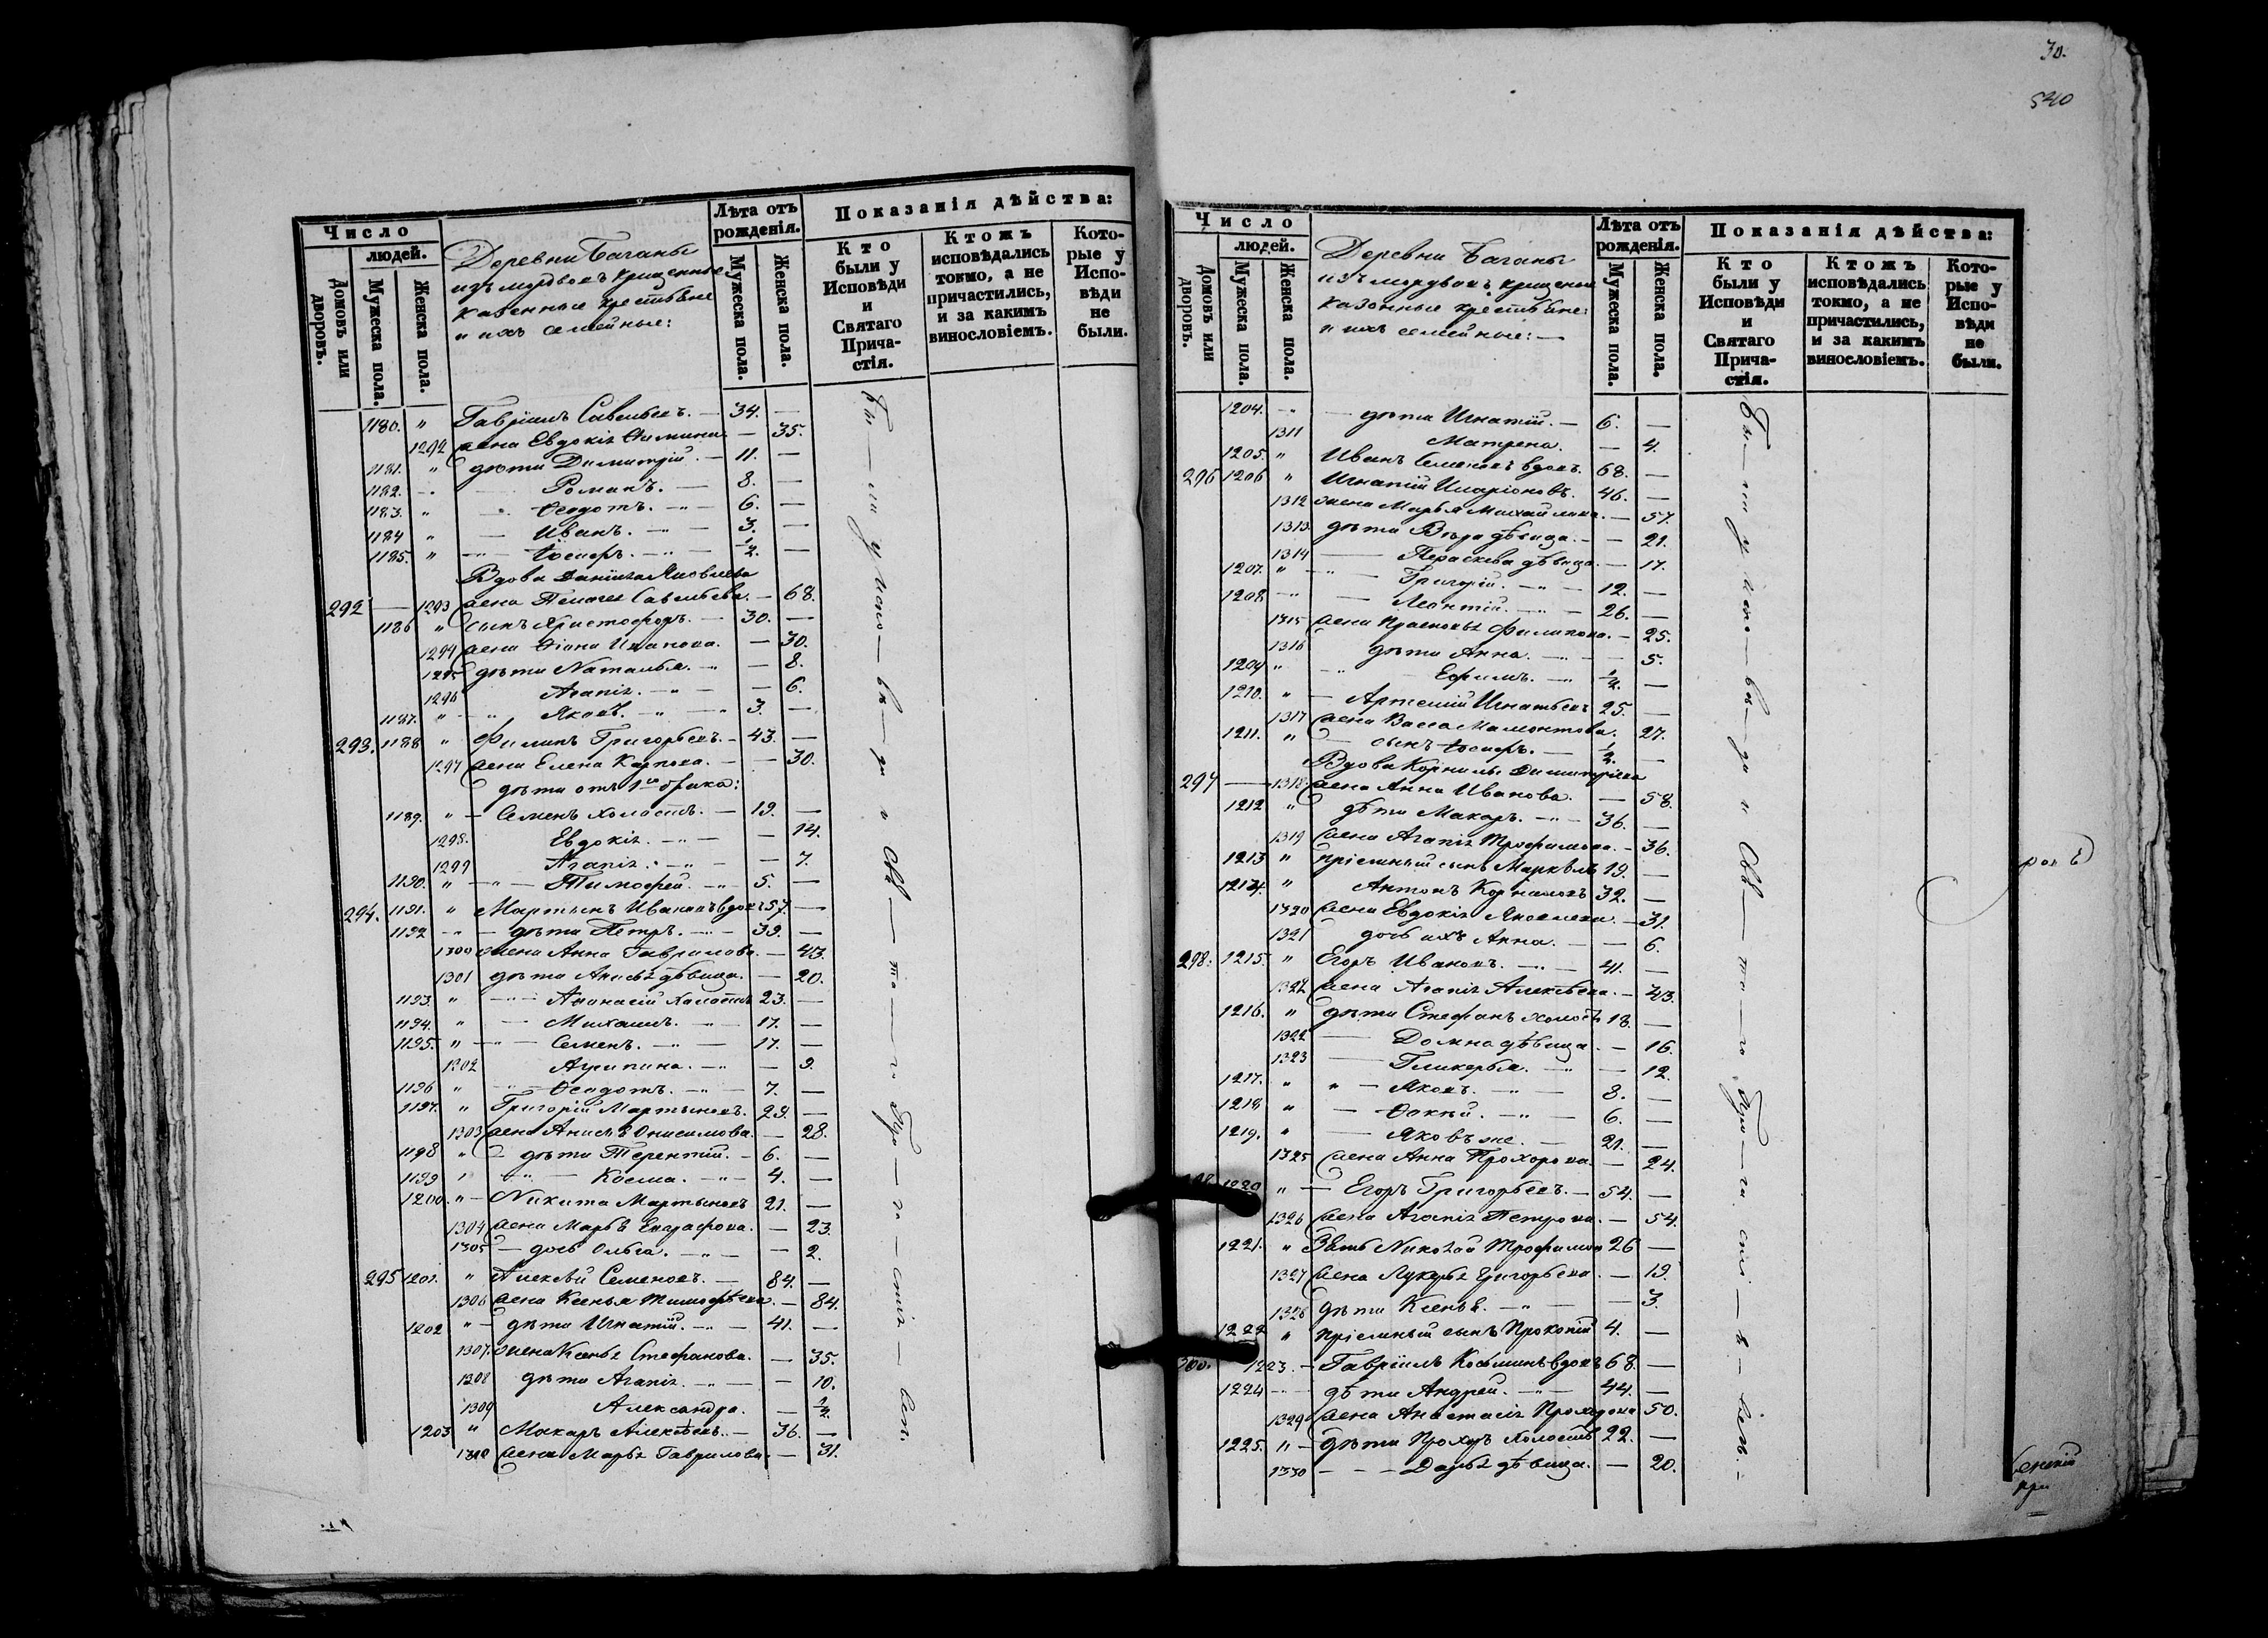 Число
людей.
Домовъ или дворовъ.
Мужеска пола.
Женска пола.
Деревни Баганы
изъ мордвовъ крещенные
казенные крестьяне
и ихъ семейные:
Лѣта отъ рожденія.
Мужеска пола.
Женска пола.
Показанія дѣйства:
Кто были у Исповѣди и Святаго Причастія.
Ктожъ исповѣдались токмо, а не причастились, и за какимъ винословіемъ.
Которые у Исповѣди не были.
1180. " Гавріилъ Савельевъ. — 34. —
1292 жена Евдокія — 35.
1181. " дѣти Димитрій. — 11. —
1182. Романъ. — 8. —
1183. " Ѳеодотъ. — 6. —
1184 " — Иванъ. — 3. —
1185. " Іосифъ. — 1/2. —
Вдова Яковлева
292 — 1293 жена Савельева. — 68.
1186 " сынъ Христофоръ. — 30. —
1294 жена Иванова. — 30.
1295 дѣти Наталья. — 8.
1296 Агапія. — 6.
1187. " Яковъ. — 3. —
293. 1188 " Филипъ Григорьевъ. — 43. —
1297 жена Елена Карпова. — 30.
дѣти отъ 1го брака:
1189. " — Семенъ холостъ. — 19. —
1298. Евдокія. — 14.
1299 Агапія. — 7.
1190. " Тимофей. — 5. —
294. 1191. " Мартынъ Ивановъ вдовъ 57. —
1192 — дѣти Петръ. — 39. —
1300 жена Анна Гаврилова. — 43.
1301 дѣти Анисья дѣвица. — 20.
1193. " Афанасій холостъ 23. —
1194. " — Михаилъ. — 17. —
1195. " Семенъ. — 17. —
1302 Агрипина. — 9.
1196 " Ѳеодотъ. — 7. —
1197. " Григорій Мартыновъ. 29. —
1303 жена Анисья Онисимова. — 28.
1198 " — дѣти Терентій. — 6. —
1199 Косма. — 4. —
1200. " — Никита Мартыновъ 21. —
1304 жена Марья Евграфова. — 23.
1305 — дочь Ольга. — 2.
295 1201. " Алексѣй Семеновъ. — 84. —
1306 жена Ксенья Тимофѣева. — 84.
1202 " — дѣти Игнатій. — 41. —
1307. жена Ксенья Стефанова. — 35.
1308 дѣти Агапія. — 10.
1309 Александра. — 1/2.
1203 " Макаръ Алексѣевъ. — 36. —
1310 жена Марья Гаврилова. — 31.
Бы — ли у испо — вѣ — ди и Свя — та — го При — ча — стія — всѣ.
30.
540
Число
людей.
Домовъ или дворовъ.
Мужеска пола.
Женска пола.
Деревни Баганы
изъ мордвовъ крещеные
казенные крестьяне
и ихъ семейные: —
Лѣта отъ рожденія.
Мужеска пола.
Женска пола.
Показанія дѣйства:
Кто были у Исповѣди и Святаго Причастія.
Ктожъ исповѣдались токмо, а не причастились, и за какимъ винословіемъ.
Которые у Исповѣди не были.
1204. — дѣти Игнатій. — 6. —
1311 Матрена. — 4.
1205. " Иванъ Семеновъ вдовъ. 68. —
296 1206 " Игнатій Иларіоновъ. 46. —
1312 жена Марья Михайлова. — 57.
1313. дѣти Вѣра дѣвица. — 21.
1314 — Параскева дѣвица. — 17.
1207. " Григорій. — 12. —
1208 — Леонтій. — 26. —
1315 жена Прасковья Филипова. — 25.
1316 дѣти Анна. — 5.
1209 " Ефимъ. — 1/2. —
1210. " — Артемій Игнатьевъ 25. —
1317 жена Васса Мамонтова. 27.
1211. " — сынъ Іосифъ. — 1/2. —
Вдова Корнилы Димитріева
297 — 1318 жена Анна Иванова. — 58.
1212 " дѣти Макаръ. — 36. —
1319 жена Агапія Трофимова. — 36.
1213 " пріемный сынъ 19. —
1214. " Антонъ Корниловъ 32. —
1320 жена Евдокія Яковлева. — 31.
1321 дочь ихъ Анна. — 6.
298. 1215. " Егоръ Ивановъ. — 41. —
1321 жена Агапія Алексѣева. — 43.
1216. " дѣти Стефанъ холостъ 18. —
1322 — Домна дѣвица. — 16.
1323 — Гликерья. — 12.
1217. " Яковъ. — 8. —
1218 " — Ѳокій. — 6. —
1219. " — Яковъ же. — 21. —
1325 жена Анна Прохорова. — 24.
1220 " — Егоръ Григорьевъ. — 54. —
1326 жена Агапія Петрова. — 54.
1221. " Зять Николай Трофимовъ 26 —
1327 жена Лукерья Григорьева. — 19.
1328 дѣти Ксенья. — 3.
1222 " пріемный сынъ Прокопій 4. —
300. 1223. — Гавріилъ Косминъ вдовъ 68. —
1224 — дѣти Андрей. — 44. —
1329 жена Анастасія Прохорова 50.
1225. " — дѣти Прохоръ холостъ 22. —
1330 — Дарья дѣвица. — 20.
Бы — ли у испо — вѣ — ди и Свя — та — го При — ча — стія — всѣ. —